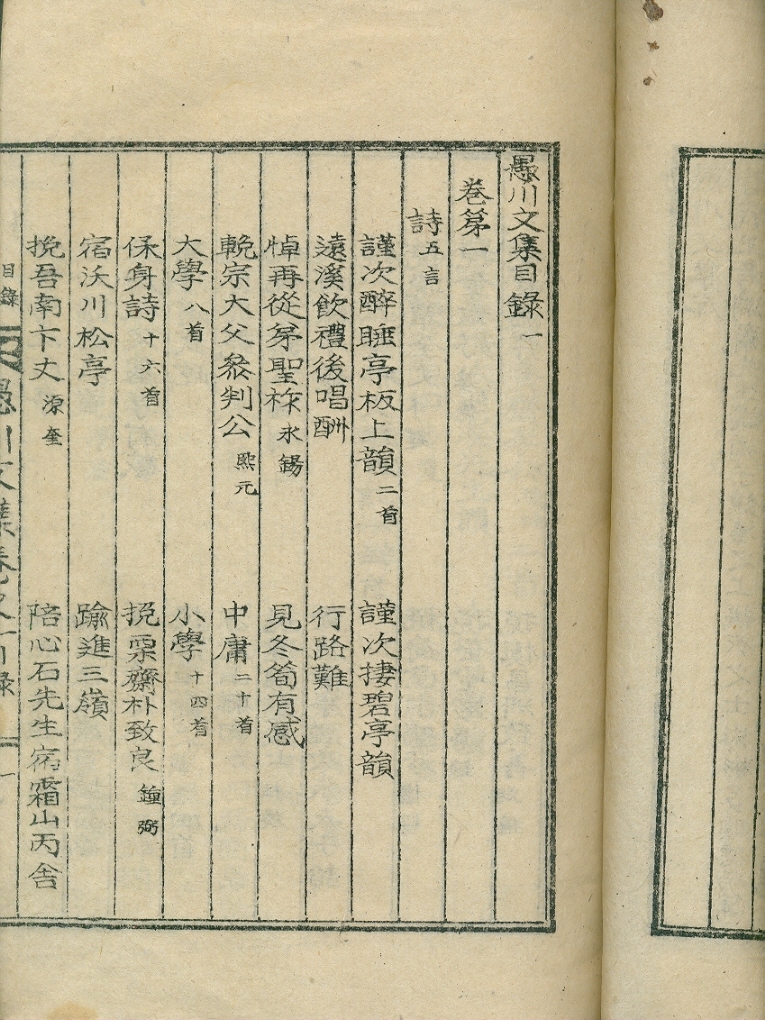 愚川文集目錄一
卷第一
詩五言
謹次醉睡亭板上韻二首 謹次捿碧亭韻
遠溪飮禮後唱酬 行路難
悼再從弟聖祚永錫 見冬筍有感
輓宗大父叅判公熙元 中庸二十首
大學八首 小學十四首
保身詩十六首 挽栗齋朴致良鐘弼
宿沃川松亭 踰進三嶺
挽吾南卞丈源奎 陪心石先生宿霜山丙舍
目錄
愚川文集卷之一目錄 一